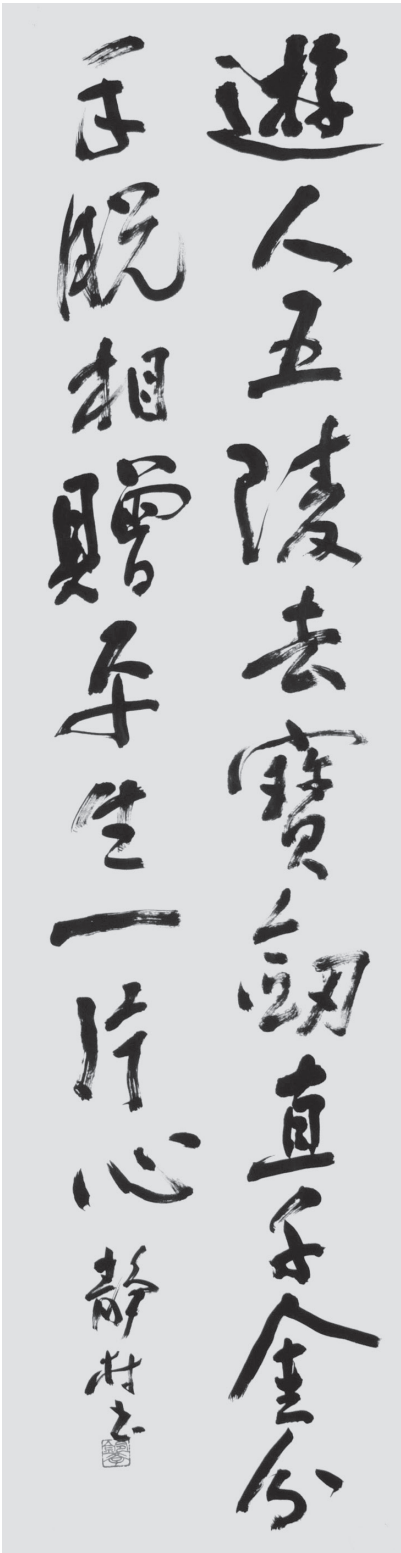 遊人五陵去寶劒直千金分
手脫相贈平生一片心
靜村書